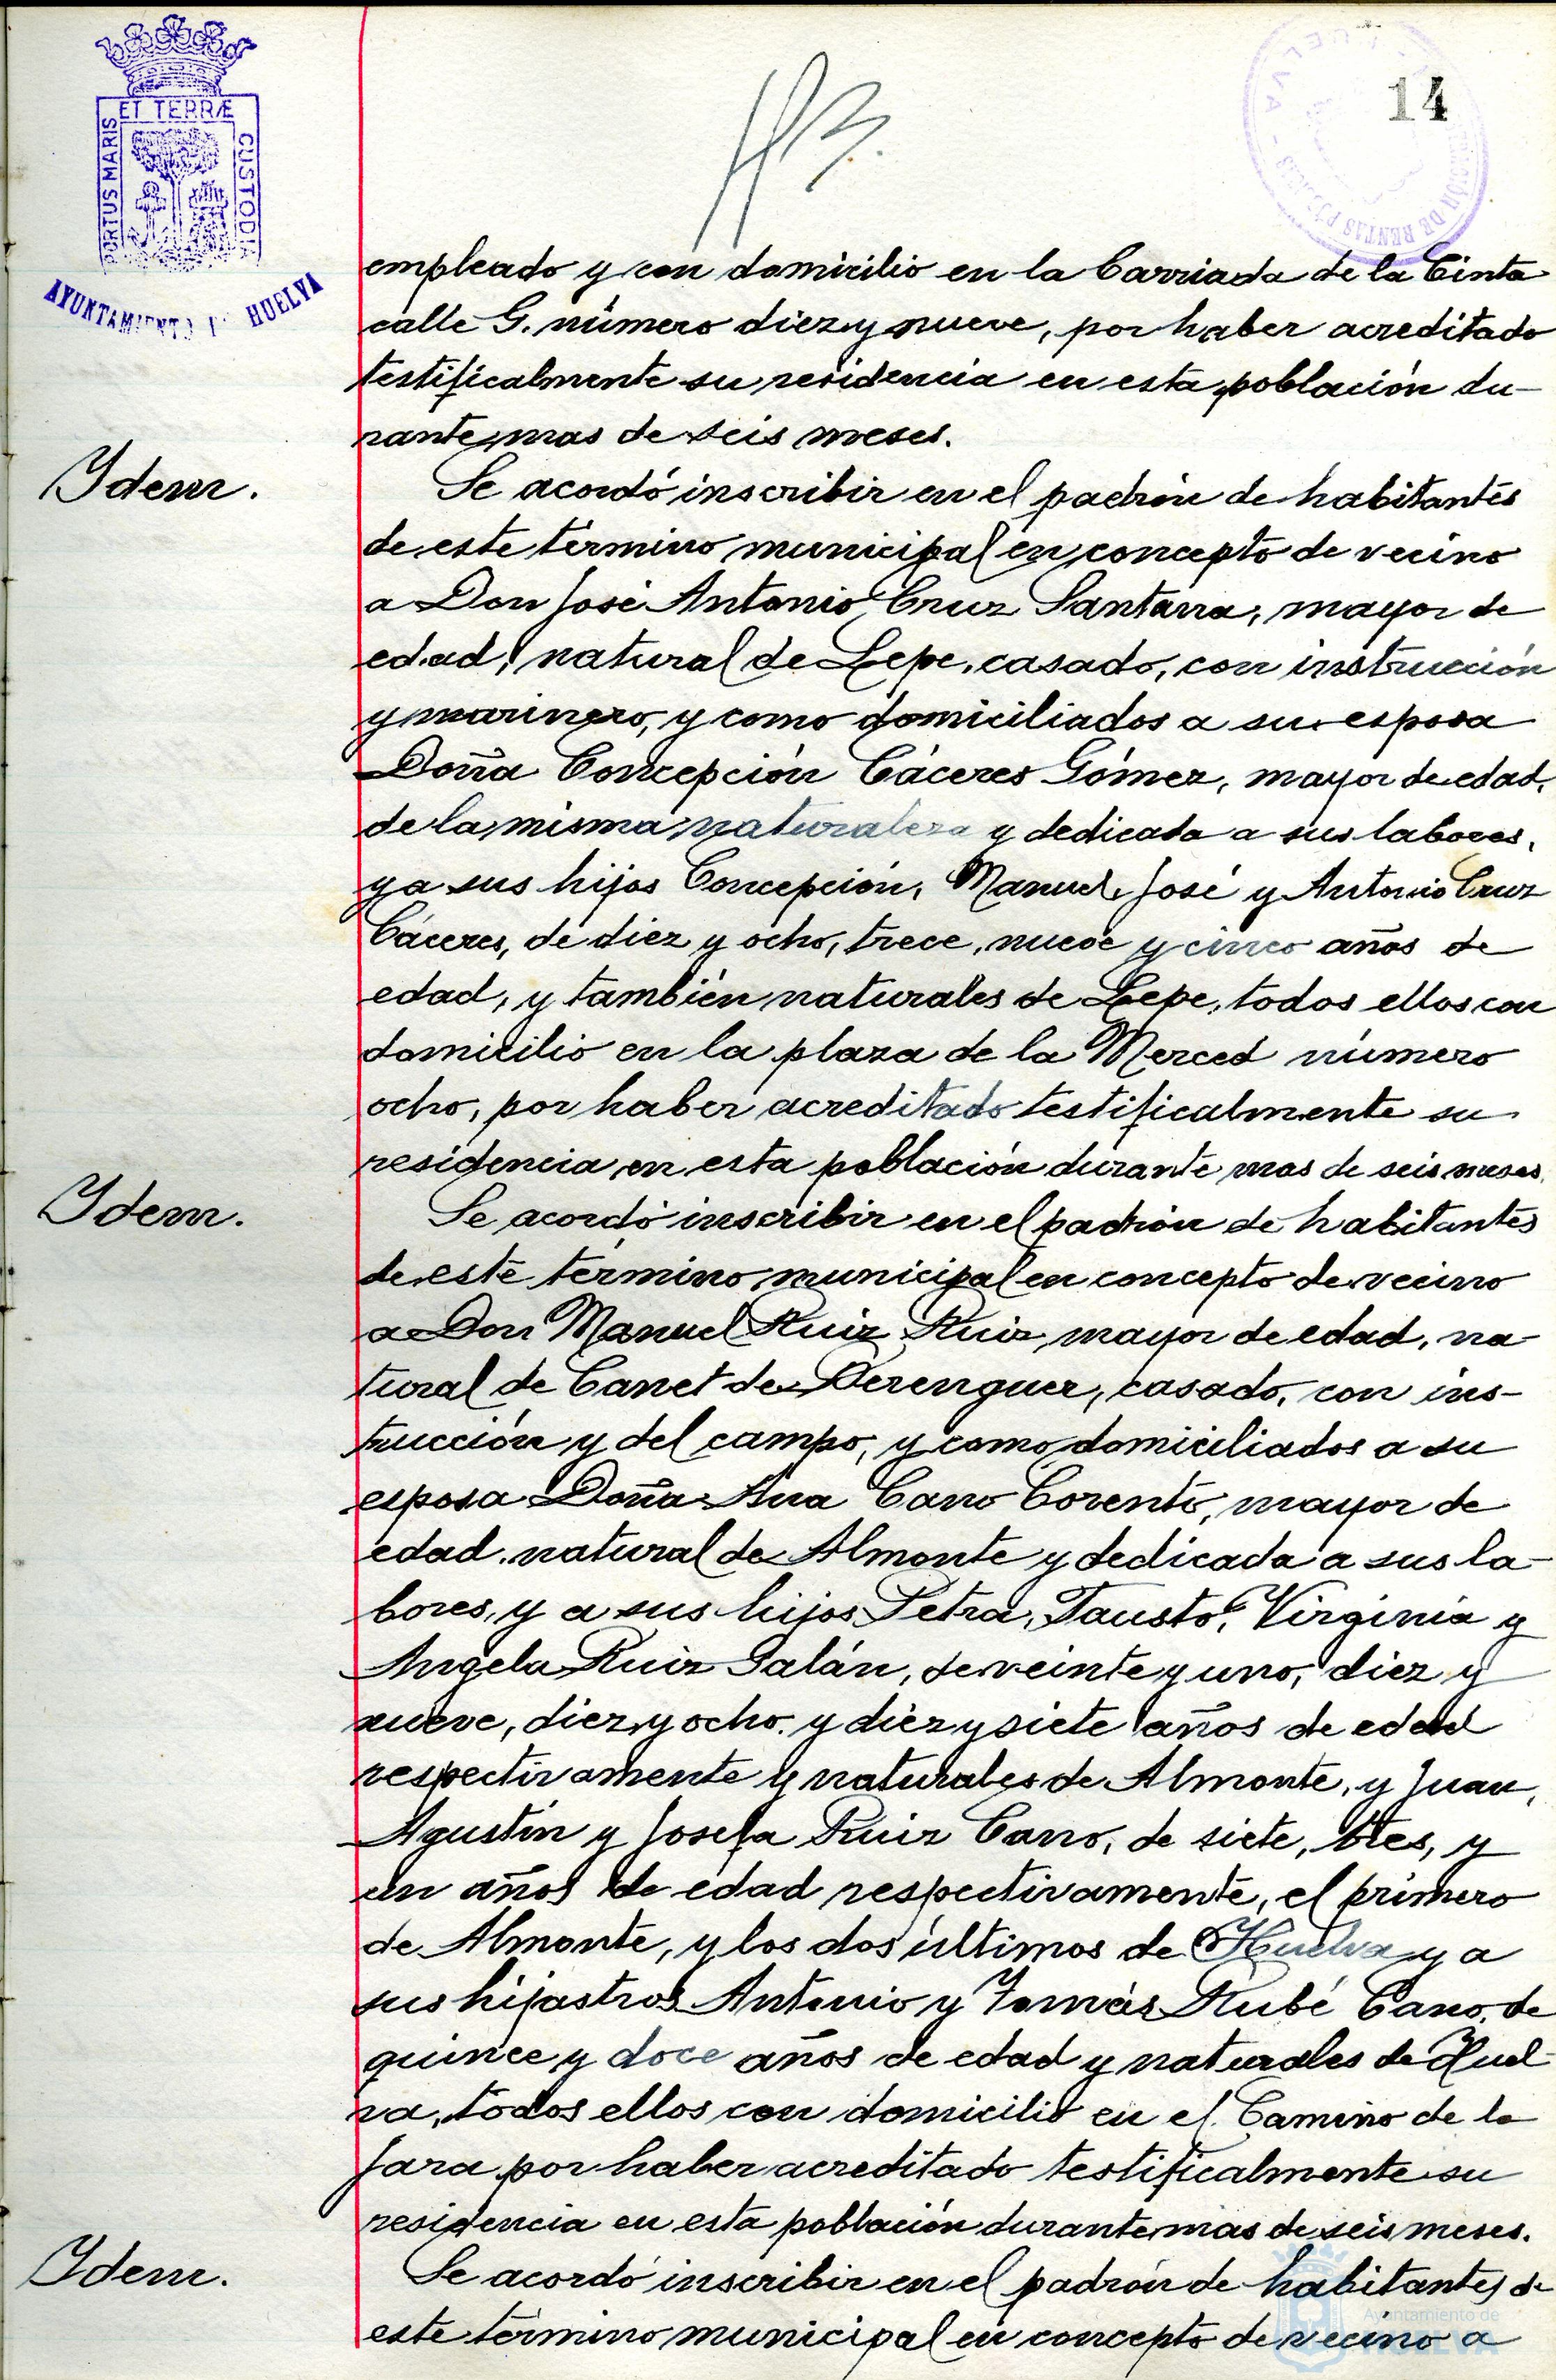 ET TERRÆ
PORTUS MARIS
CUSTODIA
AYUNTAMIENTO DE HUELVA
14
empleado y con domicilio en la barriada de la Cinta
calle G. número diez y nueve, por haber acreditado
testificalmente su residencia en esta población du-
rante mas de seis meses.
Ydem.
Se acordó inscribir en el padrón de habitantes
de este término municipal en concepto de vecino
a Don José Antonio Cruz Santana, mayor de
edad, natural de Lepe, casado, con instrucción
y marinero, y como domiciliados a su esposa
Doña Concepción Cáceres Gómez, mayor de edad,
de la misma naturaleza y dedicada a sus labores,
y a sus hijos Concepción, Manuel, José y Antonio Cruz
Cáceres, de diez y ocho, trece, nueve y cinco años de
edad, y también naturales de Lepe, todos ellos con
domicilio en la plaza de la Merced número
ocho, por haber acreditado testificalmente su
residencia en esta población durante mas de seis meses.
Ydem.
Se acordó inscribir en el padrón de habitantes
de este término municipal en concepto de vecino
a Don Manuel Ruiz Ruiz mayor de edad, na-
tural de Canet de Berenguer, casado, con ins-
trucción y del campo, y como domiciliados a su
esposa Doña Ana Cano Corento, mayor de
edad, natural de Almonte y dedicada a sus la-
bores, y a sus hijos Petra, Fausto, Virginia y
Angela Ruiz Galán, de veinte y uno, diez y
nueve, diez y ocho y diez y siete años de edad
respectivamente y naturales de Almonte, y Juan,
Agustín y Josefa Ruiz Cano, de siete, tres, y
un años de edad respectivamente, el primero
de Almonte, y los dos últimos de Huelva y a
sus hijastros Antonio y Tomás Rubé Cano, de
quince y doce años de edad y naturales de Huel-
va, todos ellos con domicilio en el Camino de la
Jara por haber acreditado testificalmente su
residencia en esta población durante mas de seis meses.
Ydem.
Se acordó inscribir en el padrón de habitantes de
este término municipal en concepto de vecino a
Ayuntamiento de
HUELVA